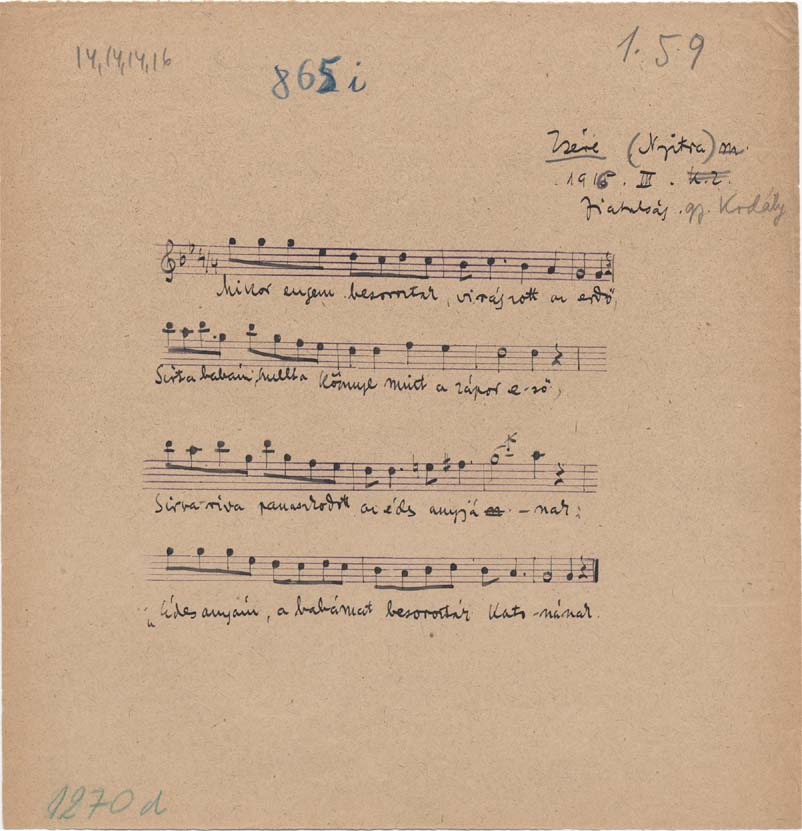 14,14,14,16
865 i
1.5.9
Zsére (Nyitra) m.
1916. III. k.z.
Fiatalság. gy. Kodály
Mikor engem besoroztak, virágzott az erdő,
Sírt a babám, hullt a könnye mint a zápor e-ső,
Sírva-ríva panaszkodott az édes anyjá m. -nak:
„Édesanyám, a babámat besorozták Kato-nának.
1270 d